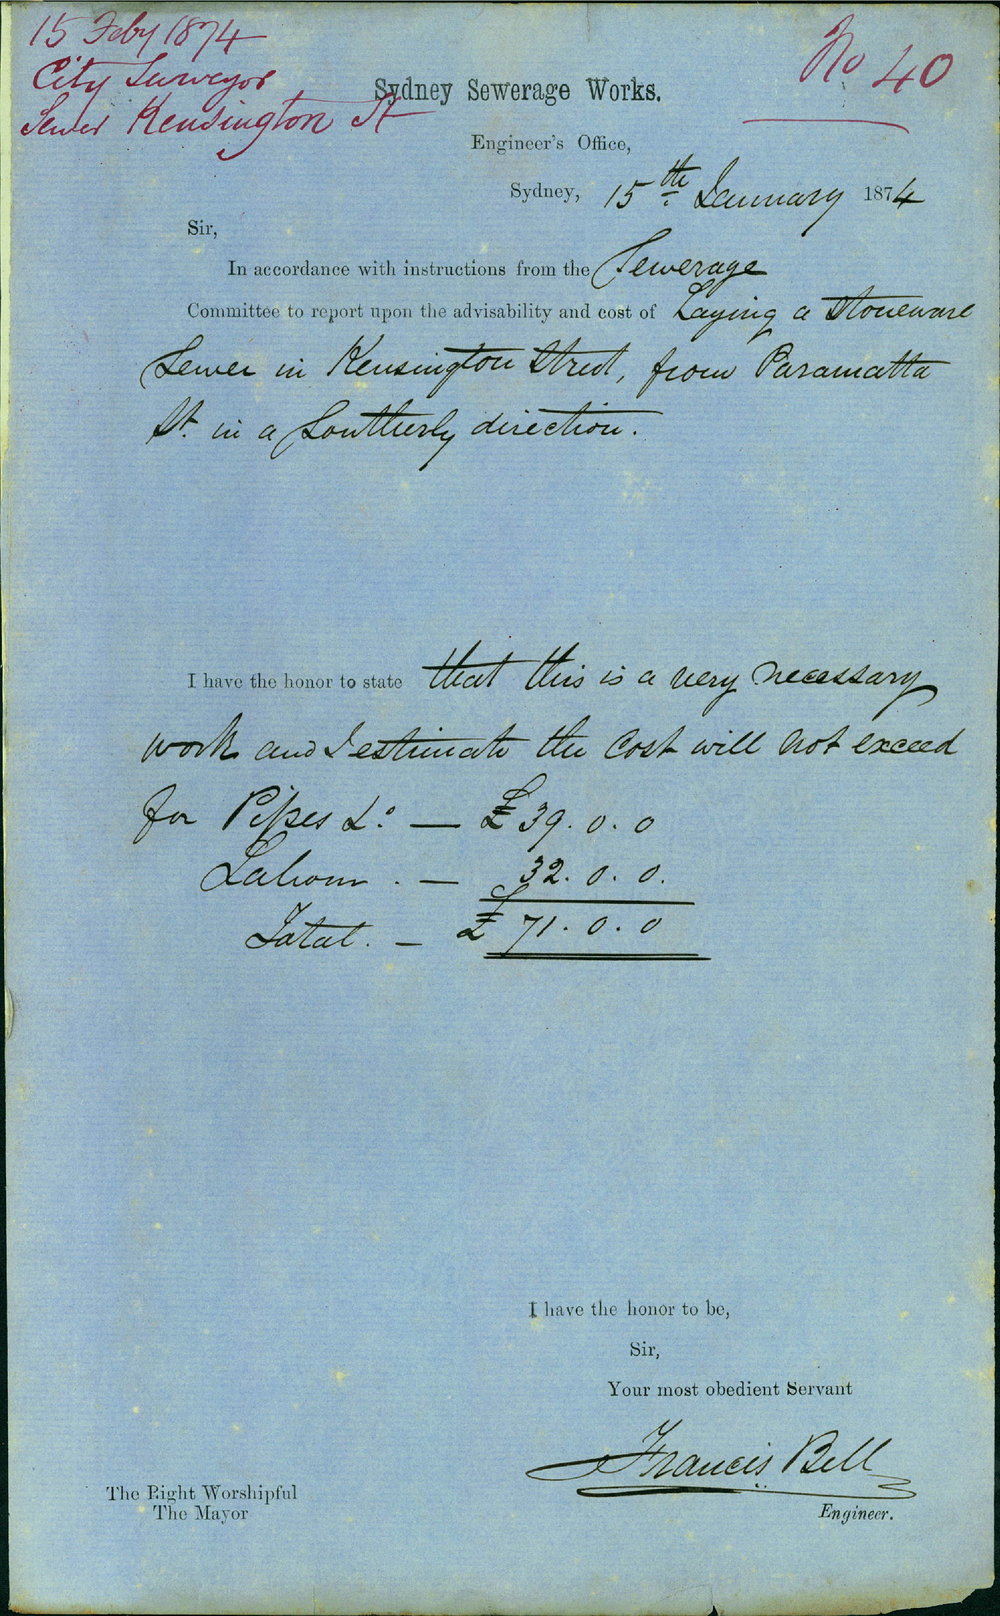 15 Feby 1874
City Surveyor
Sewer Kensington St
No 40
Sydney Sewerage Works.
Engineer's Office,
Sydney, 15th January 1874
Sir,
In accordance with instructions from the Sewerage
Committee to report upon the advisability and cost of Laying a Stoneware
Sewer in Kensington Street, from Paramatta
St. in a Southerly direction.
I have the honor to state that this is a very necessary
work and I estimate the Cost will not exceed
for Pipes &c — £39.0.0
Labour. — 32.0.0.
Total. — £71.0.0
I have the honor to be,
Sir,
Your most obedient Servant
Francis Bell
Engineer.
The Right Worshipful
The Mayor